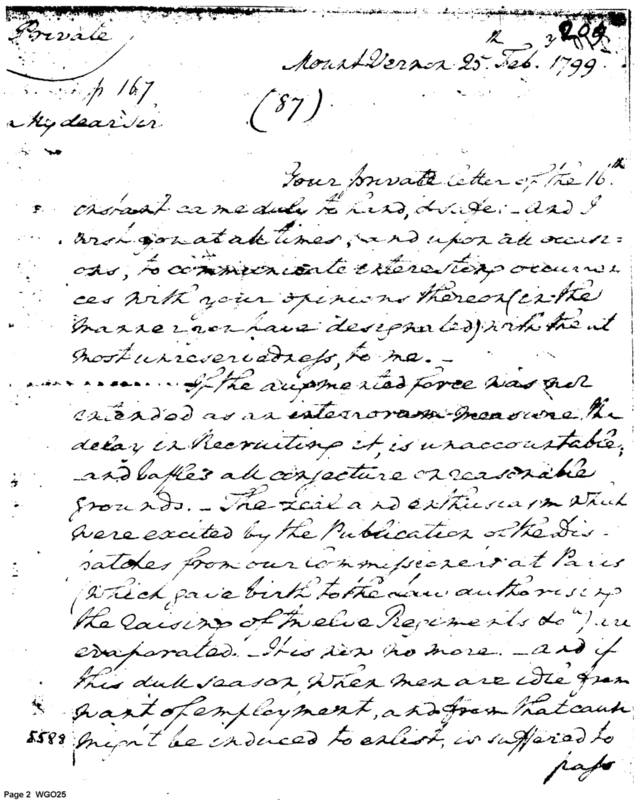 Private
209
Mount Vernon 25th Feb. 1799.
p 167
(87)
My dear Sir
Your private letter of the 16th
instant came duly to hand, & safe: - And I
wish you at all times, and upon all occasi=
ons, to communicate interesting occurren
ces with your opinions thereon (in the
manner you have designated) with the ut
most unreservedness, to me. -
If the augmented force was not
intended as an interrorem measure, the
delay in Recruiting it, is unaccountable,
and baffles all conjecture on reasonable
grounds. - The zeal and enthusiasm which
were excited by the Publication of the Dis-
patches from our Commissioners at Paris
(which gave birth to the Law authorising
the raising of twelve Regiments &ca) are
evaporated. - It is now no more. - and if
this dull season, when men are idle from
want of employment, and from that cause
might be induced to enlist, is suffered to
5589
pass
Page 2 WGO25